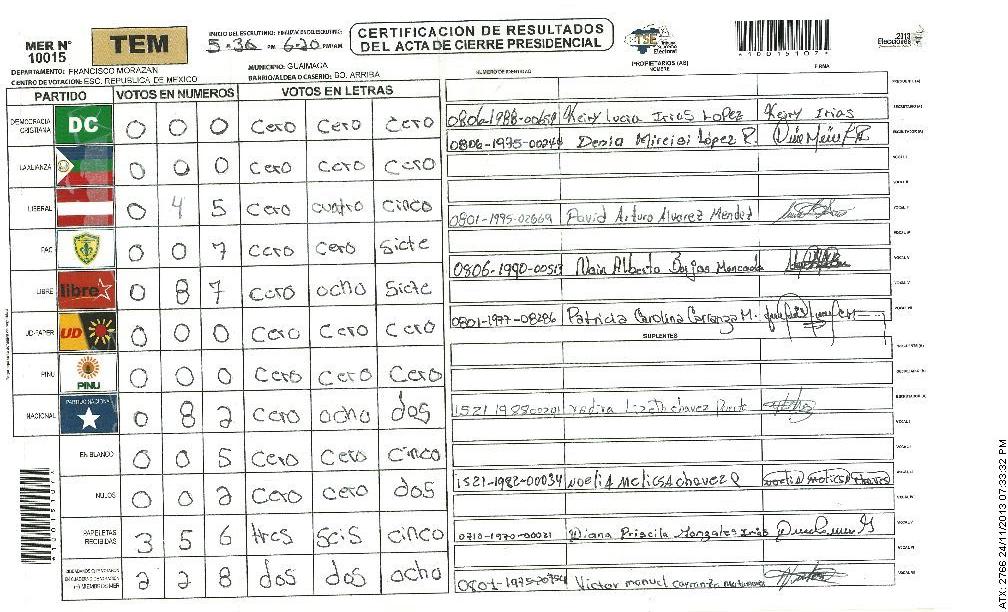 MER N° 10015
TEM
INICIO DEL ESCRUTINIO:
5:30 PM 6:20 PM/AM
CERTIFICACION DE RESULTADOS
DEL ACTA DE CIERRE PRESIDENCIAL
TSE Tribunal Supremo Electoral
100151072
2013
Elecciones
DEPARTAMENTO: FRANCISCO MORAZAN
MUNICIPIO: GUAIMACA
CENTRO DE VOTACION: ESC. REPUBLICA DE MEXICO
BARRIO/ALDEA O CASERIO: BO. ARRIBA
NUMERO DE IDENTIDAD
PROPIETARIOS (AS)
NOMBRE
FIRMA
PARTIDO VOTOS EN NUMEROS VOTOS EN LETRAS
DEMOCRACIA CRISTIANA DC 0 0 0 cero cero cero
LA ALIANZA 0 0 0 cero cero cero
LIBERAL 0 4 5 cero cuatro cinco
PAC 0 0 7 cero cero siete
LIBRE libre 0 8 7 cero ocho siete
UD-FAPER UD 0 0 0 cero cero cero
PINU PINU 0 0 0 cero cero cero
NACIONAL PARTIDO NACIONAL 0 8 2 cero ocho dos
EN BLANCO 0 0 5 cero cero cinco
NULOS 0 0 2 cero cero dos
PAPELETAS RECIBIDAS 3 5 6 tres seis cinco
2 2 8 dos dos ocho
PRESIDENTE (A)
SECRETARIO (A)
Keiry Lucia Irias Lopez Keiry Irias
ESCRUTADOR (A)
0806-1975-00244 Denia Mireisi López R.
VOCAL I
VOCAL II
VOCAL III
0801-1995-02669 David Arturo Alvarez Mendez
VOCAL IV
VOCAL V
Alberto
VOCAL VI
VOCAL VII
0801-1977-08286 Patricia Carolina Carranza M.
SUPLENTES
PRESIDENTE (A)
SECRETARIO (A)
ESCRUTADOR (A)
Lizeth chavez
VOCAL I
VOCAL II
VOCAL III
1521-1982-00034 chavez
VOCAL IV
VOCAL V
0710-1970-00021 Diana Priscila Gonzales Irias
VOCAL VI
VOCAL VII
Victor manuel carranza
ATX: 2766 24/11/2013 07:33:32 PM